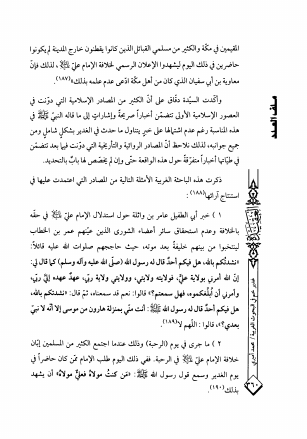 المقيمين في مكّة والكثير من مسلمي القبائل الذين كانوا يقطنون خارج المدينة ليكونوا
حاضرين في ذلك اليوم ليشهدوا الإعلان الرسمي لخلافة الإمام عليّ ﷺ، لذلك فإنّ
معاوية بن أبي سفيان الذي كان من أهل مكّة ادّعى عدم علمه بذلك»(١٨٧).
وأكدت السيّدة دقّاق على أنّ الكثير من المصادر الإسلامية التي دوّنت في
العصور الإسلامية الأولى تتضمّن أخباراً صريحةً وإشاراتٍ إلى ما قاله النبيّ ﷺ في
هذه المناسبة رغم عدم اشتمالها على خبرٍ يتناول ما حدث في الغدير بشكلٍ شاملٍ ومن
جميع جوانبه، لذلك نلاحظ أنّ المصادر الروائية والتأريخية التي دوّنت فيها بعد تتضمّن
في طيّاتها أخباراً متفرّقةً حول هذه الواقعة حتّى وإن لم يخصّص لها بابٌ بالتحديد.
ذكرت هذه الباحثة الغربية الأمثلة التالية من المصادر التي اعتمدت عليها في
استنتاج آرائها(١٨٨):
١) خبر أبي الطفيل عامر بن واثلة حول استدلال الإمام عليّ في حقّه
بالخلافة وعدم استحقاق سائر أعضاء الشورى الذين عيّنهم عمر بن الخطاب
لينتخبوا من بينهم خليفةً بعد موته، حيث حاججهم صلوات الله عليه قائلاً:
«نشدتكم بالله، هل فيكم أحدٌ قال له رسول الله (صلّى الله عليه وآله وسلم) كما قال لي:
إنّ الله أمرني بولاية عليّ، فولايته ولايتي، وولايتي ولاية ربّي، عهدٌ عهده إليّ ربّي،
وأمرني أن أبلّغكموه، فهل سمعتم؟» قالوا: نعم قد سمعناه، ثمّ قال: «نشدتكم بالله،
هل فيكم أحدٌ قال له رسول الله ﷺ: أنت منّي بمنزلة هارون من موسى إلا أنّه لا نبي
بعدي؟»، قالوا: اللّهم لا(١٨٩).
٢) ما جرى في يوم (الرحبة) وذلك عندما اجتمع الكثير من المسلمين إبّان
خلافة الإمام عليّ في الرحبة. ففي ذلك اليوم طلب الإمام ممّن كان حاضراً في
يوم الغدير وسمع قول رسول الله ﷺ: «مَن كنتُ مولاهُ فعليٌّ مولاهُ» أن يشهد
بذلك(١٩٠).
٣٦٠